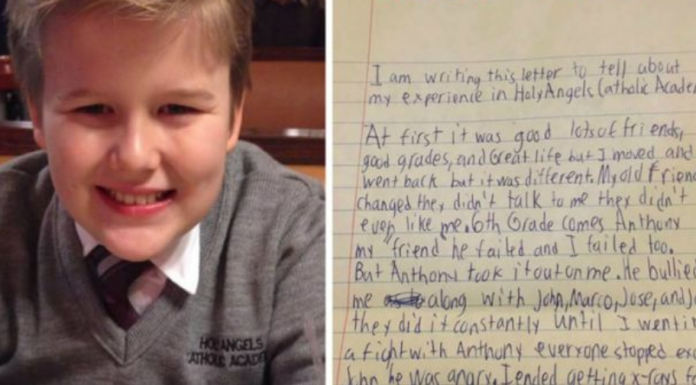 HOLY ANGELS
CATHOLIC ACADEMY
I am writing this letter to tell about
my experience in HolyAngels Catholic Acade
At first it was good lots of friends,
good grades, and Great life but I moved and
went back but it was different. My old frien
changed they didn't talk to me they didn't
even like me. 6th Grade comes Anthony
my "friend" he failed and I failed too.
But Anthony took it out on me. He bullied
me along with John, Marco, Jose, and J
they did it constantly until I went in
a fight with Anthony everyone stopped exc
John he was angry. I ended getting x-rays fo